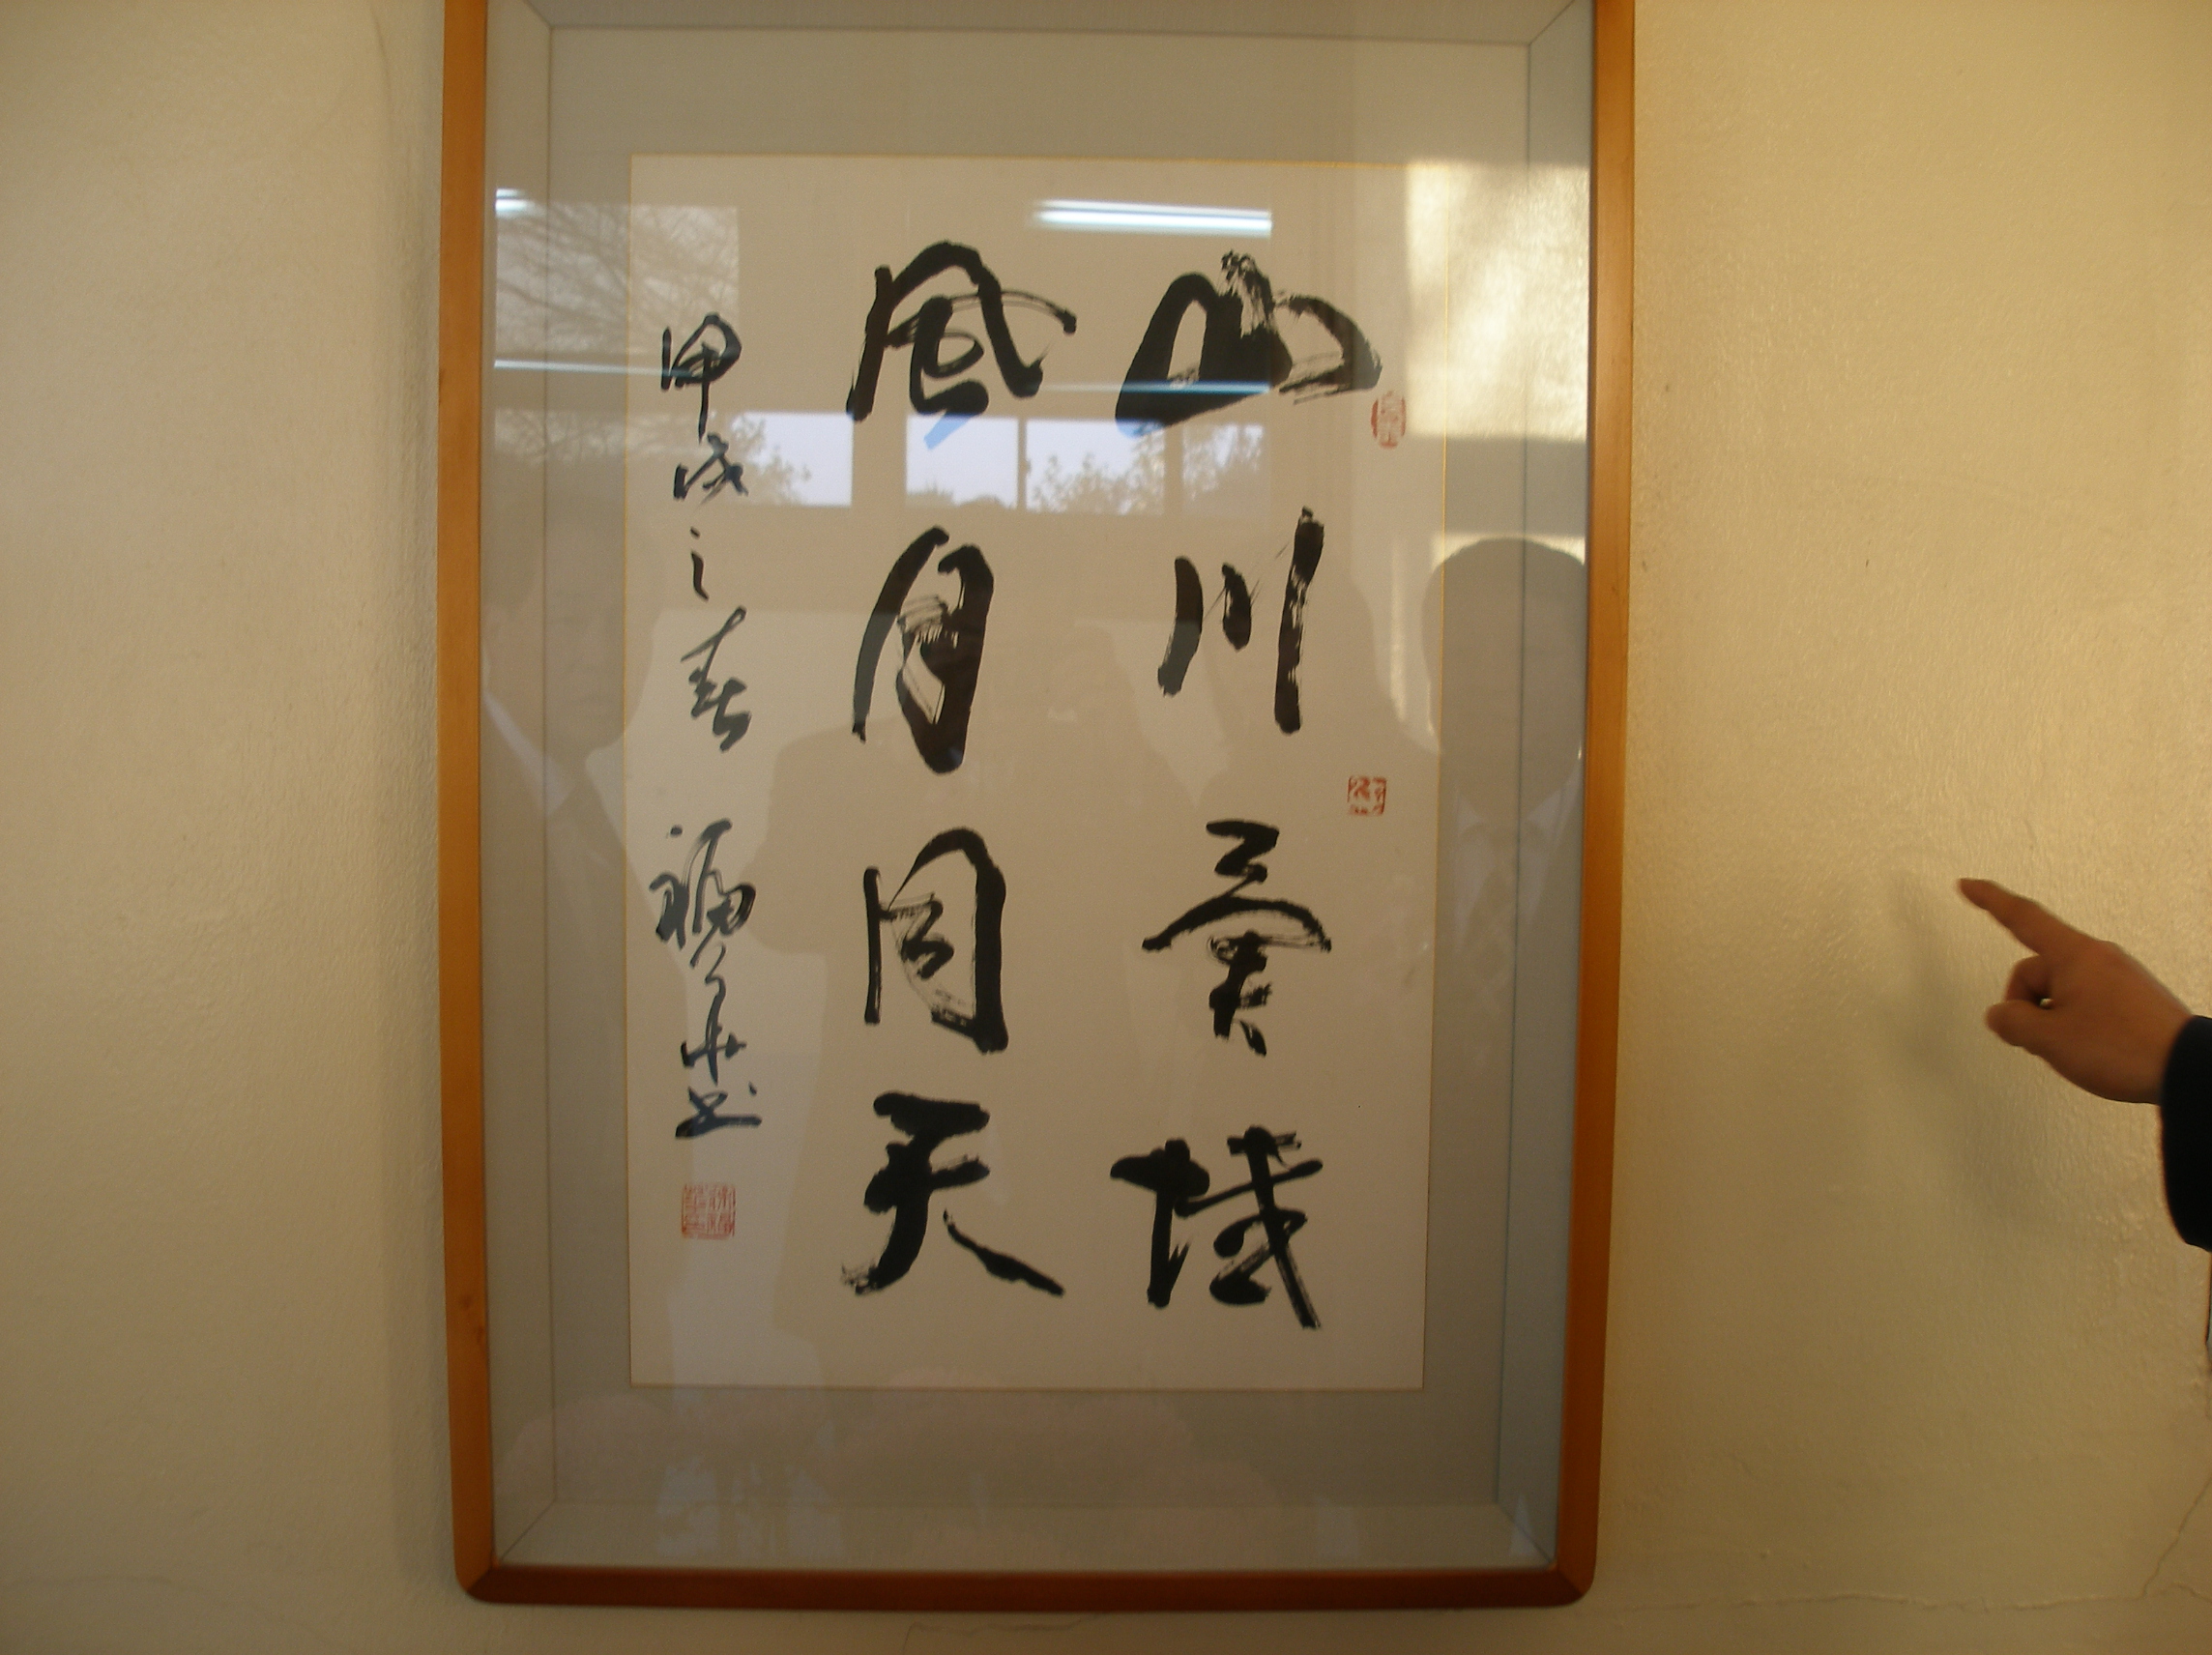 山川異域
風月同天
甲戌之春